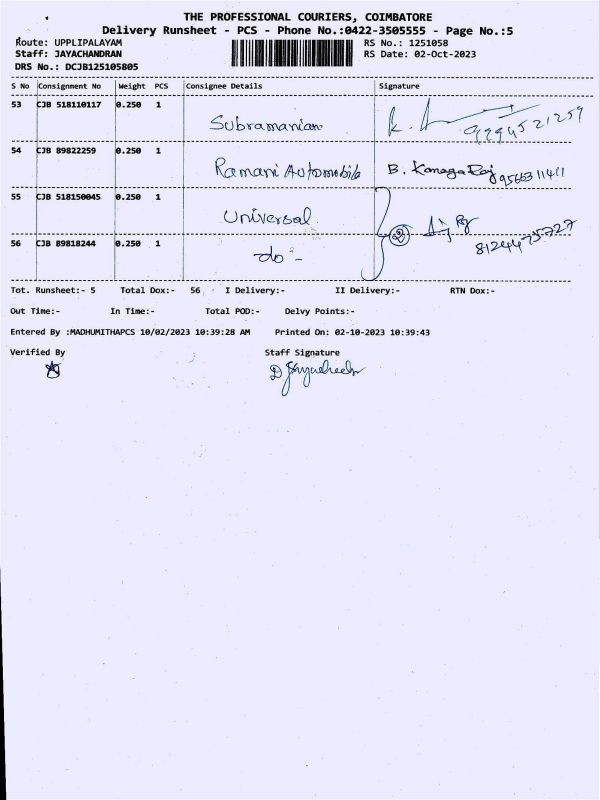 THE PROFESSIONAL COURIERS, COIMBATORE
Delivery Runsheet - PCS - Phone No.:0422-3505555 - Page No.:5
Route: UPPLIPALAYAM RS No.: 1251058
Staff: JAYACHANDRAN RS Date: 02-Oct-2023
DRS No.: DCJB125105805
S No Consignment No Weight PCS Consignee Details Signature
53 CJB 518110117 0.250 1 Subramanian 9994521259
54 CJB 89822259 0.250 1 Ramani Automobile B. Kanagaraj 9566311411
55 CJB 518150045 0.250 1 Universal
② 8124475727
56 CJB 89818244 0.250 1 -do-
Tot. Runsheet:- 5 Total Dox:- 56 I Delivery:- II Delivery:- RTN Dox:-
Out Time:- In Time:- Total POD:- Delvy Points:-
Entered By :MADHUMITHAPCS 10/02/2023 10:39:28 AM Printed On: 02-10-2023 10:39:43
Verified By Staff Signature